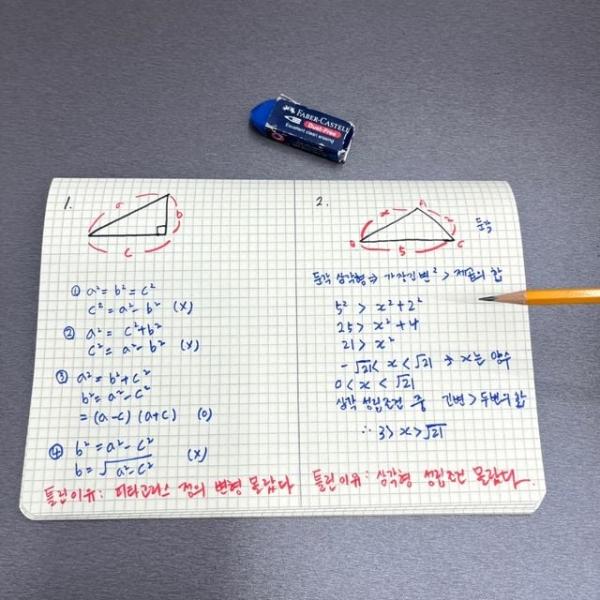 FABER-CASTELL
Dust-Free
Excellent clean erasing
1.
a
b
c
① a² = b² = c²
c² = a² - b² (X)
② a² = c² + b²
c² = a² - b² (X)
③ a² = b² + c²
b² = a² - c²
= (a-c) (a+c) (O)
④ b² = a² - c²
b = √a² - c² (X)
틀린이유: 피타고라스 정의 변형 몰랐다
2.
A
x
2
둔각
B
5
C
둔각 삼각형 → 가장긴변² > 제곱의 합
5² > x² + 2²
25 > x² + 4
21 > x²
-√21 < x < √21 → x는 양수
0 < x < √21
삼각 성립조건 중 긴변 > 두변의 합
∴ 3 > x > √21
틀린이유: 삼각형 성립조건 몰랐다.